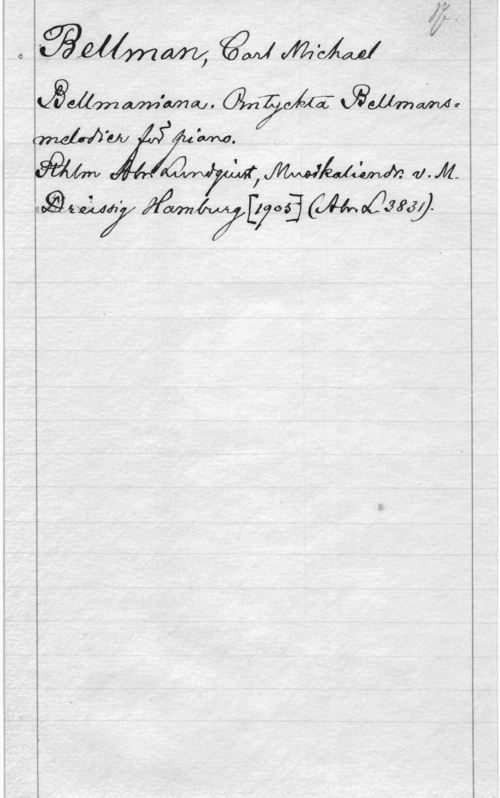 Bellman, Carl Michael
Bellmaniana. Omtyckta Bellmans=
melodier för piano.
Sthlm Abr Lundquist, Musikaliendr. v. M.
Dreissig Hamburg [1905] (Abr. L. 3831).